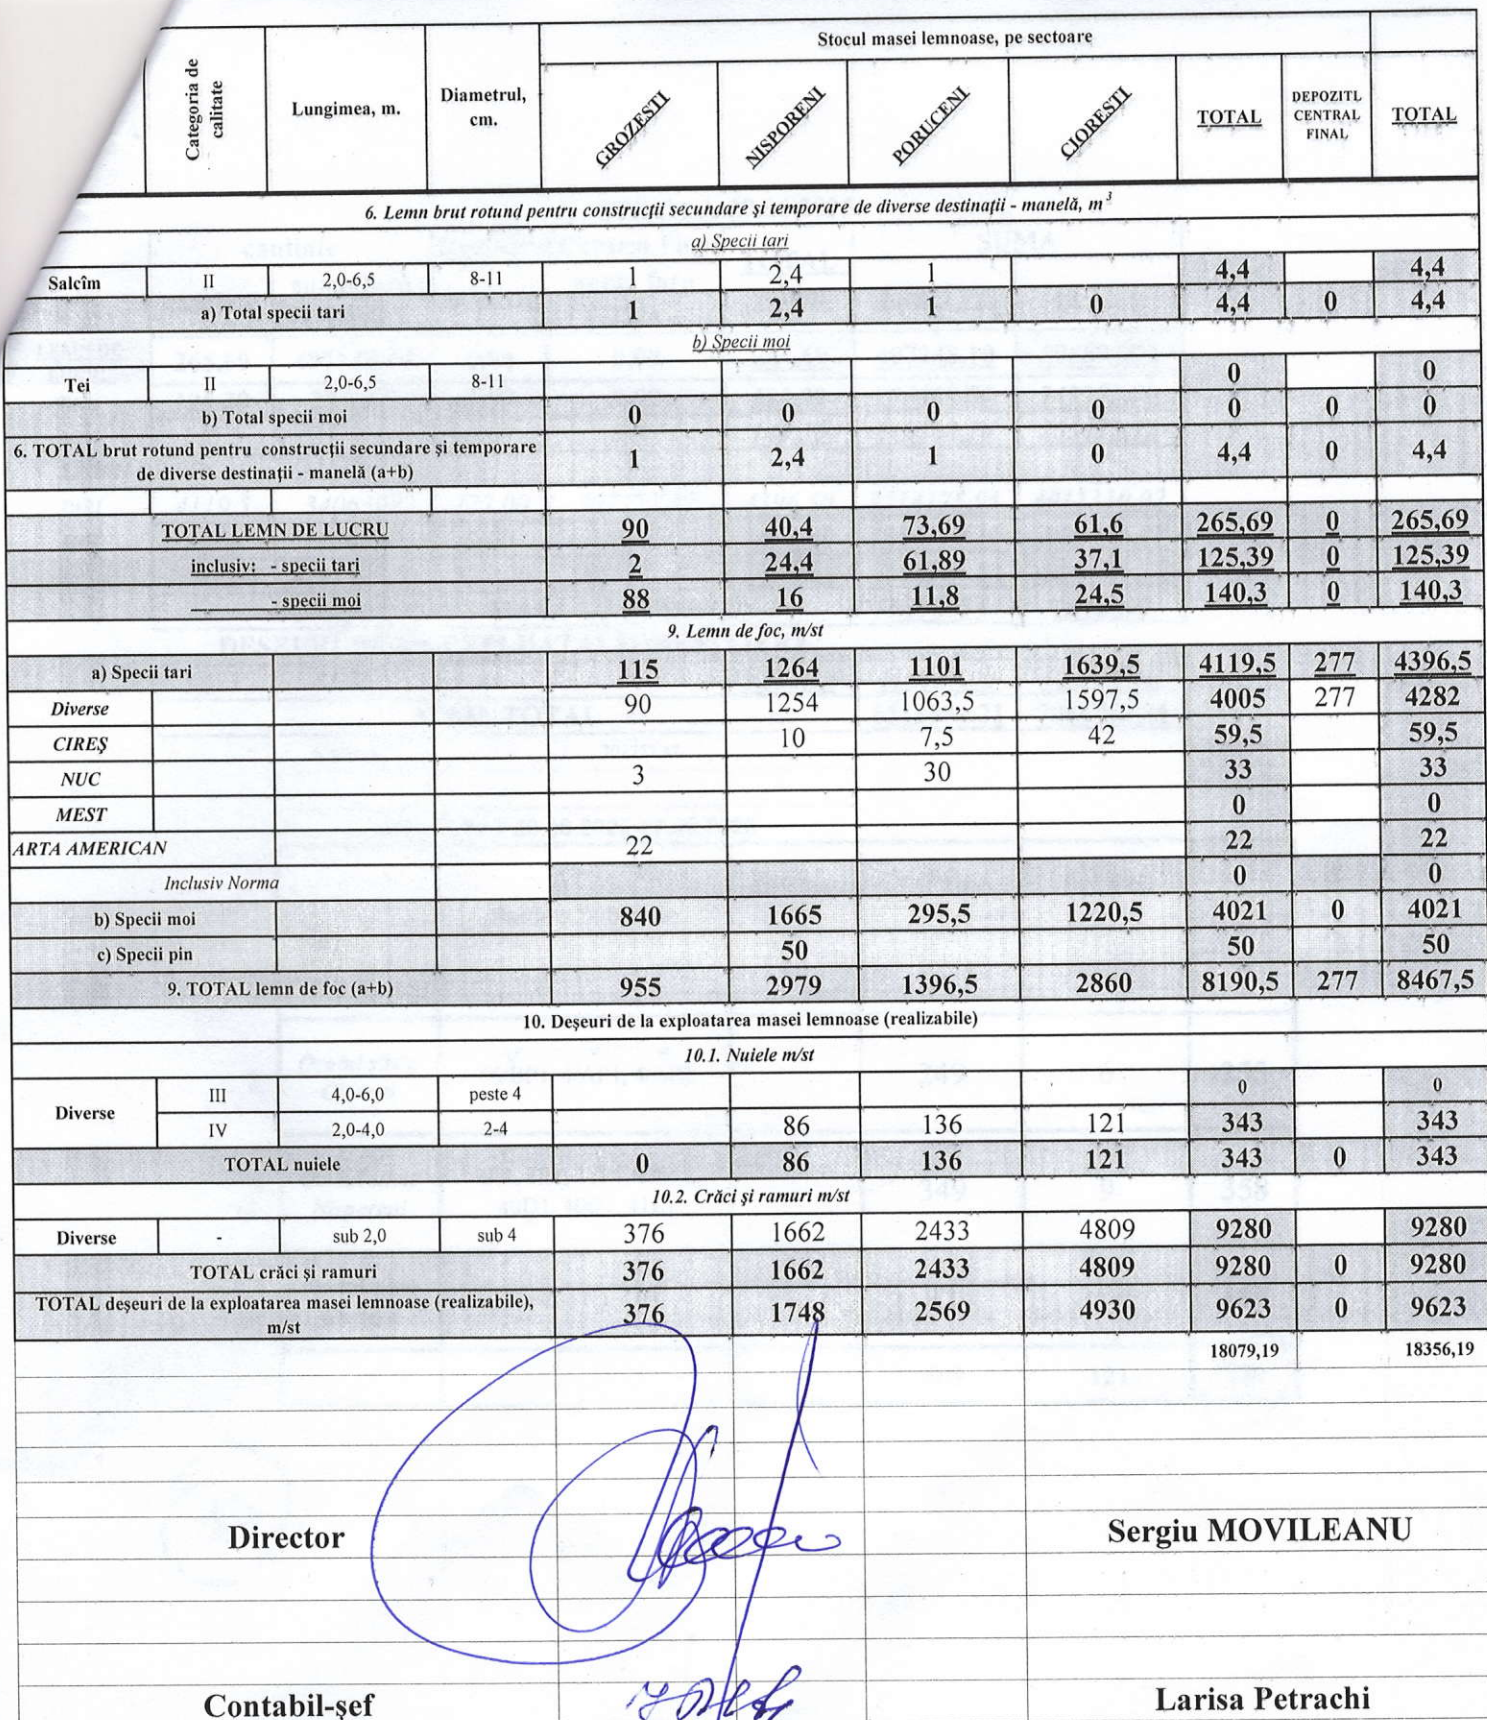 Stocul masei lemnoase, pe sectoare
Categoria de calitate Lungimea, m. Diametrul, cm. GROZESTI NISPORENI PORUCENI CIORESTI TOTAL DEPOZITL CENTRAL FINAL TOTAL
6. Lemn brut rotund pentru construcţii secundare şi temporare de diverse destinaţii - manelă, m³
a) Specii tari
Salcîm II 2,0-6,5 8-11 1 2,4 1 4,4 4,4
a) Total specii tari 1 2,4 1 0 4,4 0 4,4
b) Specii moi
Tei II 2,0-6,5 8-11 0 0
b) Total specii moi 0 0 0 0 0 0 0
6. TOTAL brut rotund pentru construcţii secundare şi temporare
de diverse destinaţii - manelă (a+b) 1 2,4 1 0 4,4 0 4,4
TOTAL LEMN DE LUCRU 90 40,4 73,69 61,6 265,69 0 265,69
inclusiv: - specii tari 2 24,4 61,89 37,1 125,39 0 125,39
- specii moi 88 16 11,8 24,5 140,3 0 140,3
9. Lemn de foc, m/st
a) Specii tari 115 1264 1101 1639,5 4119,5 277 4396,5
Diverse 90 1254 1063,5 1597,5 4005 277 4282
CIREŞ 10 7,5 42 59,5 59,5
NUC 3 30 33 33
MEST 0 0
ARTA AMERICAN 22 22 22
Inclusiv Norma 0 0
b) Specii moi 840 1665 295,5 1220,5 4021 0 4021
c) Specii pin 50 50 50
9. TOTAL lemn de foc (a+b) 955 2979 1396,5 2860 8190,5 277 8467,5
10. Deşeuri de la exploatarea masei lemnoase (realizabile)
10.1. Nuiele m/st
Diverse III 4,0-6,0 peste 4 0 0
IV 2,0-4,0 2-4 86 136 121 343 343
TOTAL nuiele 0 86 136 121 343 0 343
10.2. Crăci şi ramuri m/st
Diverse - sub 2,0 sub 4 376 1662 2433 4809 9280 9280
TOTAL crăci şi ramuri 376 1662 2433 4809 9280 0 9280
TOTAL deşeuri de la exploatarea masei lemnoase (realizabile),
m/st 376 1748 2569 4930 9623 0 9623
18079,19 18356,19
Director Sergiu MOVILEANU
Contabil-şef Larisa Petrachi